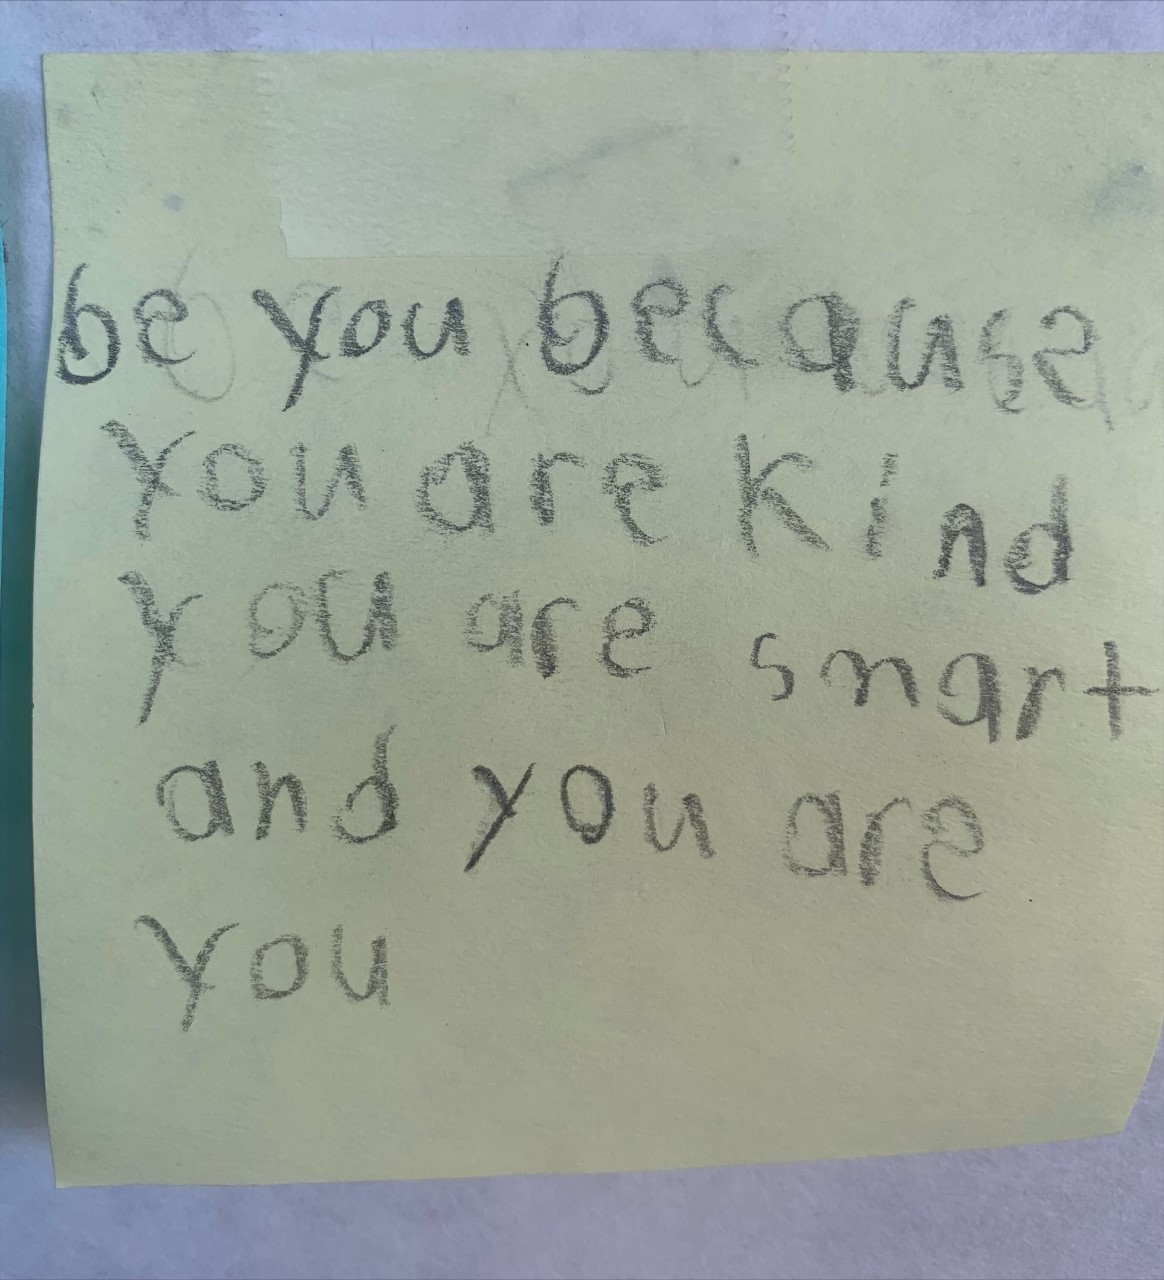 be you because
you are kind
you are smart
and you are
you